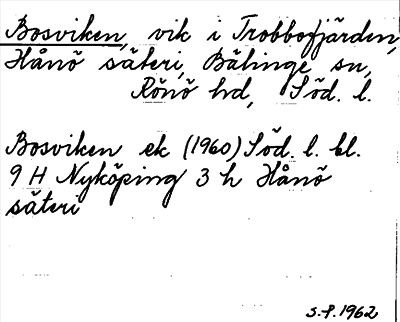 Bosviken, vik i Trobbofjärden,
Hånö säteri, Bälinge sn,
Rönö hd, Söd. l.
Bosviken ek (1960) Söd. l. bl.
9 H Nyköping 3 h Hånö
säteri
1962